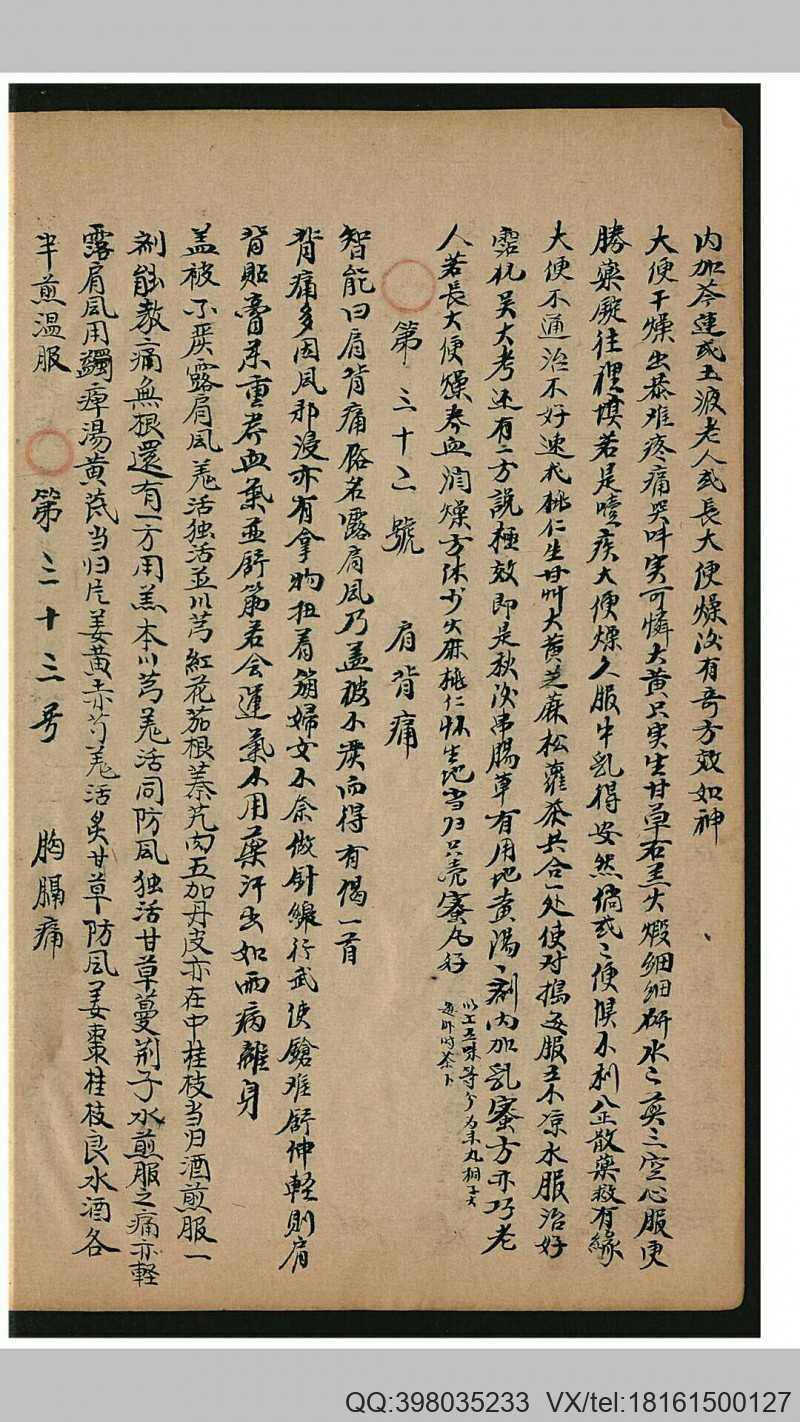 内加芩連或五液老人或長大便燥汝有奇方效如神
大便干燥出恭难疼痛哭叫实可憐大黄只实生甘草石羔火煅細細研水二煎三空心服更
勝藥厰往裡填若是噎疾大便燥久服牛乳得安然倘或二便俱不利八正散藥救有緣
大便不通治不好速找桃仁生甘艸大黄芝蔴松蘿茶共合一处使对搗每服五不凉水服治好
吴大考还有二方說極效即是秋汝串腸草有用地黄湯二剤内加乳蜜方亦巧老
人若長大便燥养血润燥方休少火麻桃仁怀生地当归只壳蜜丸好
以上五味等分为末丸桐子大
每卧时茶下
第三十二號 肩背痛
智能曰肩背痛俗名露肩風乃盖被不嚴而得有偈一首
背痛多因風邪浸亦有拿物扭着筋婦女不奈做針線行武使鎗难舒伸軽則肩
背貼膏藥重养血氣並舒筋若会運氣不用藥汗出如雨病離身
盖被不嚴露肩風羗活独活並川芎紅花茄根蓁艽肉五加丹皮亦在中桂枝当归酒煎服一
剤能教痛無根還有一方用羔本川芎羗活同防風独活甘草蔓荆子水煎服之痛亦軽
露肩風用蠲痺湯黄芪当归片姜黄赤芍羗活炙甘草防風姜棗桂枝良水酒各
半煎温服
第三十三号 胸膈痛
QQ:398035233 VX/tel:18161500127